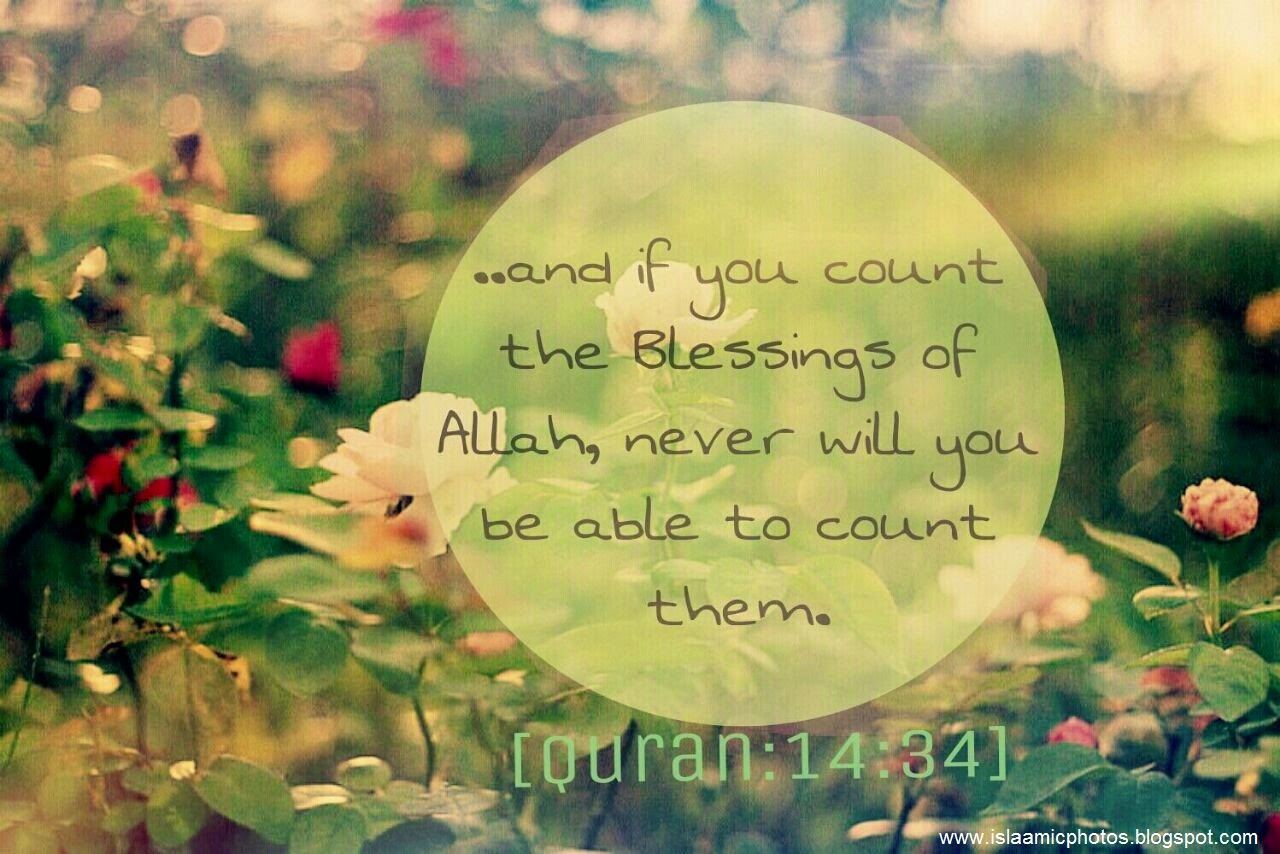 ..and if you count
the Blessings of
Allah, never will you
be able to count
them.
[quran:14:34]
www.islaamicphotos.blogspot.com